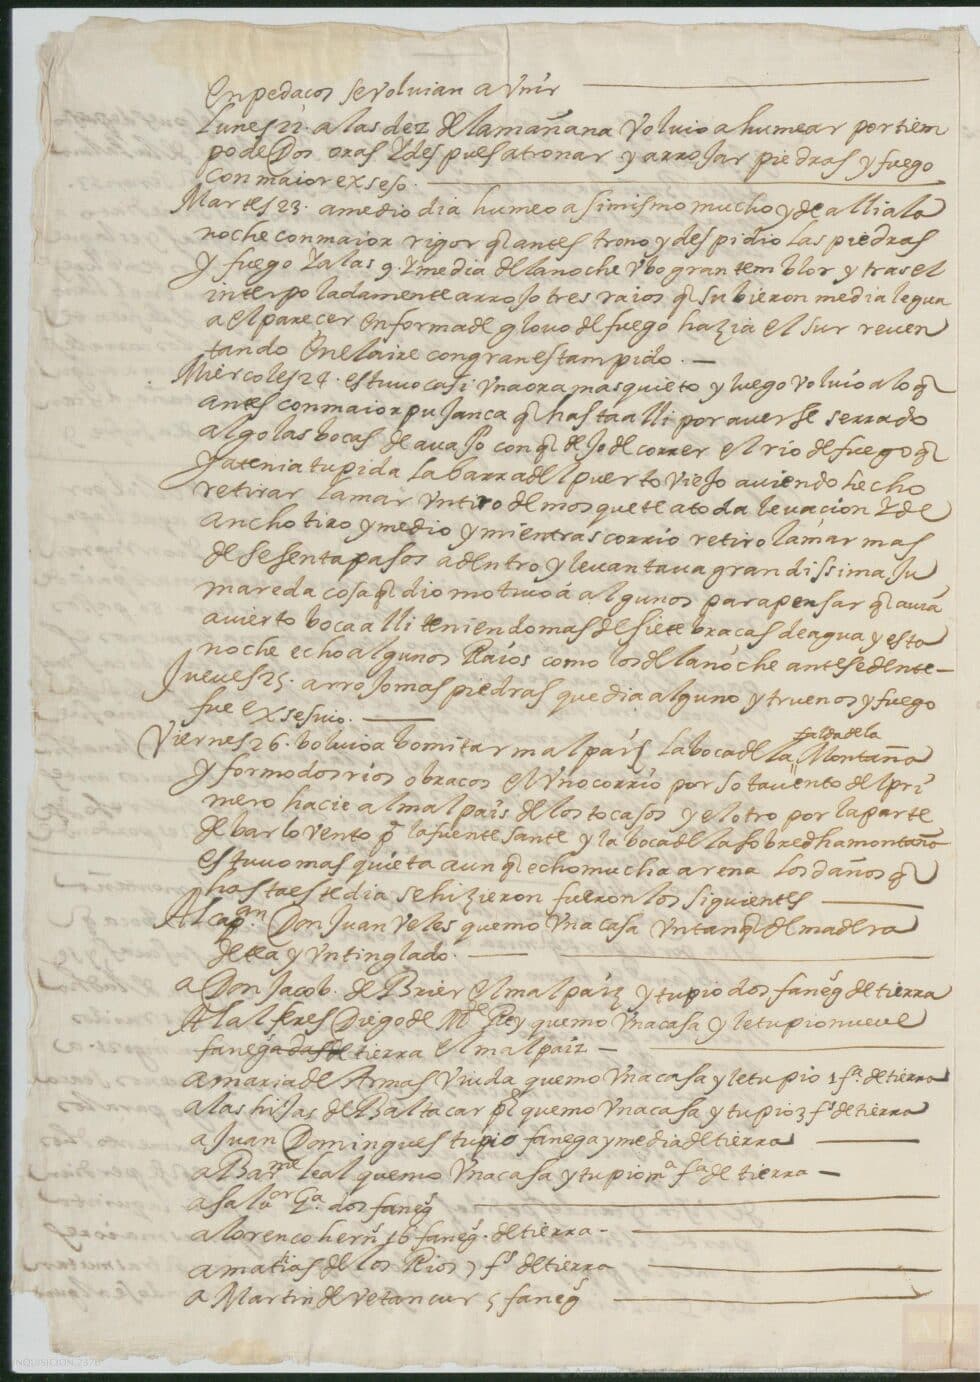 en pedaços se volvian a Vnir
Lunes 22. a las dez de la mañana volvio a humear por tiem
po de Dos oras y despues a tronar y arrojar piedras y fuego
con maior exseso.
Martes 23. a medio dia humeo asimismo mucho y de alli a la
noche con maior rigor q antes trono y despidio las piedras
y fuego y a las 9. y media de la noche vbo gran temblor y tras el
interpoladamente arrojo tres raios q subieron media legua
a el parecer en forma de glovo de fuego hazia el sur reven
tando en el aire con gran estampido.
Miercoles 24. estuvo casi vna ora mas quieto y luego volvio a lo q
antes con maior pujanca q hasta alli por averse serrado
algo las bocas de avajo con q dejo de correr el rio de fuego q
ya tenia tupida la barra del puerto viejo aviendo hecho
retirar la mar vn tiro de mosquete a toda levacion y de
ancho tiro y medio y mientras corrio retiro la mar mas
de sesenta pasos adentro y levantava grandissima ju
mareda cosa q dio motivo á algunos para pensar q avia
avierto boca alli teniendo mas de siete bracas de agua y esta
noche echo algunos Raios como los de la noche antesedente
Jueves 25. arrojo mas piedras que dia alguno y truenos y fuego
fue exsesivo.
Viernes 26. bolvio a bomitar malpaiz la boca de la falda de la Montaña
y formo dos rios o bracos el vno corrio por sotavento del pri
mero hacie al malpais de los tocasos y el otro por la parte
de barlovento p la fuente sante y la boca de la sobredha montaña
estuvo mas quieta aunq echo mucha arena Los daños q
hasta este dia se hizieron fueron los siguientes
Al capan. Don Juan Veles quemo vna casa vn tanq de madera
de tea y vn tinglado.
a Don Jacob. de Brier el malpaiz y tupio dos faneg de tierra
Al alferes Diego de Mte Rey quemo vna casa y le tupio nueve
fanegadas de tierra el malpaiz
a maria de Armas Viuda quemo vna casa y le tupio 1 fa. de tierra
a las hijas de Baltacar pl quemo vna casa y tupio 3 fs de tierra
a Juan Domingues tupio fanega y media de tierra
a Barme leal quemo vna casa y tupio ma fa de tierra
a saluor Ga. dos faneg
a lorenco herns 16 faneg. de tierra
a matias de los Rios 7 fs de tierra
a Martin de vetancur 5 faneg